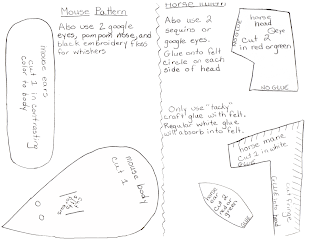 Mouse Pattern
Also use 2 google
eyes, pompom nose, and
black embroidery floss
for whiskers
mouse ears
cut 1 in contrasting
color to body
mouse body
cut 1
Also use 2
sequins or
google eyes.
Glue onto felt
circle on each
side of head
horse
head
eye
Cut 2
in red or green
NO GLUE
Only use "tacky"
craft glue with felt.
Regular white glue
will absorb into felt.
horse mane
Cut 2 in white
GLUE
horse
ear
Cut 2
red or
green
GLUE